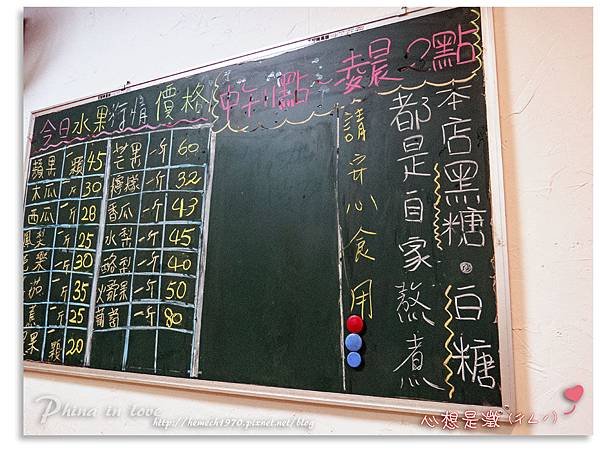 今日水果行情價格
中午1點~凌晨2點
蘋果 一顆 45
木瓜 一斤 30
西瓜 一斤 28
鳳梨 一斤 25
芭樂 一斤 30
一斤 35
一斤 25
果 一顆 20
芒果 一斤 60
檸檬 一斤 32
香瓜 一斤 43
水梨 一斤 45
酪梨 一斤 40
火龍果 一斤 50
葡萄 一斤 80
本店黑糖.白糖
都是自家熬煮
請安心食用
Phina in love
http://hemech1970.pixnet.net/blog
心想是澂(ㄔㄥˊ)